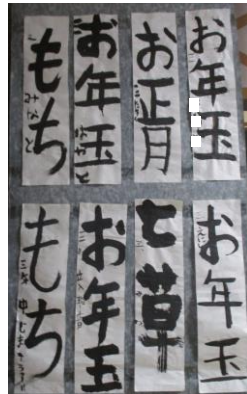 お年玉
お正月
お年玉
もち
みなと
お年玉
七草
お年玉
もち